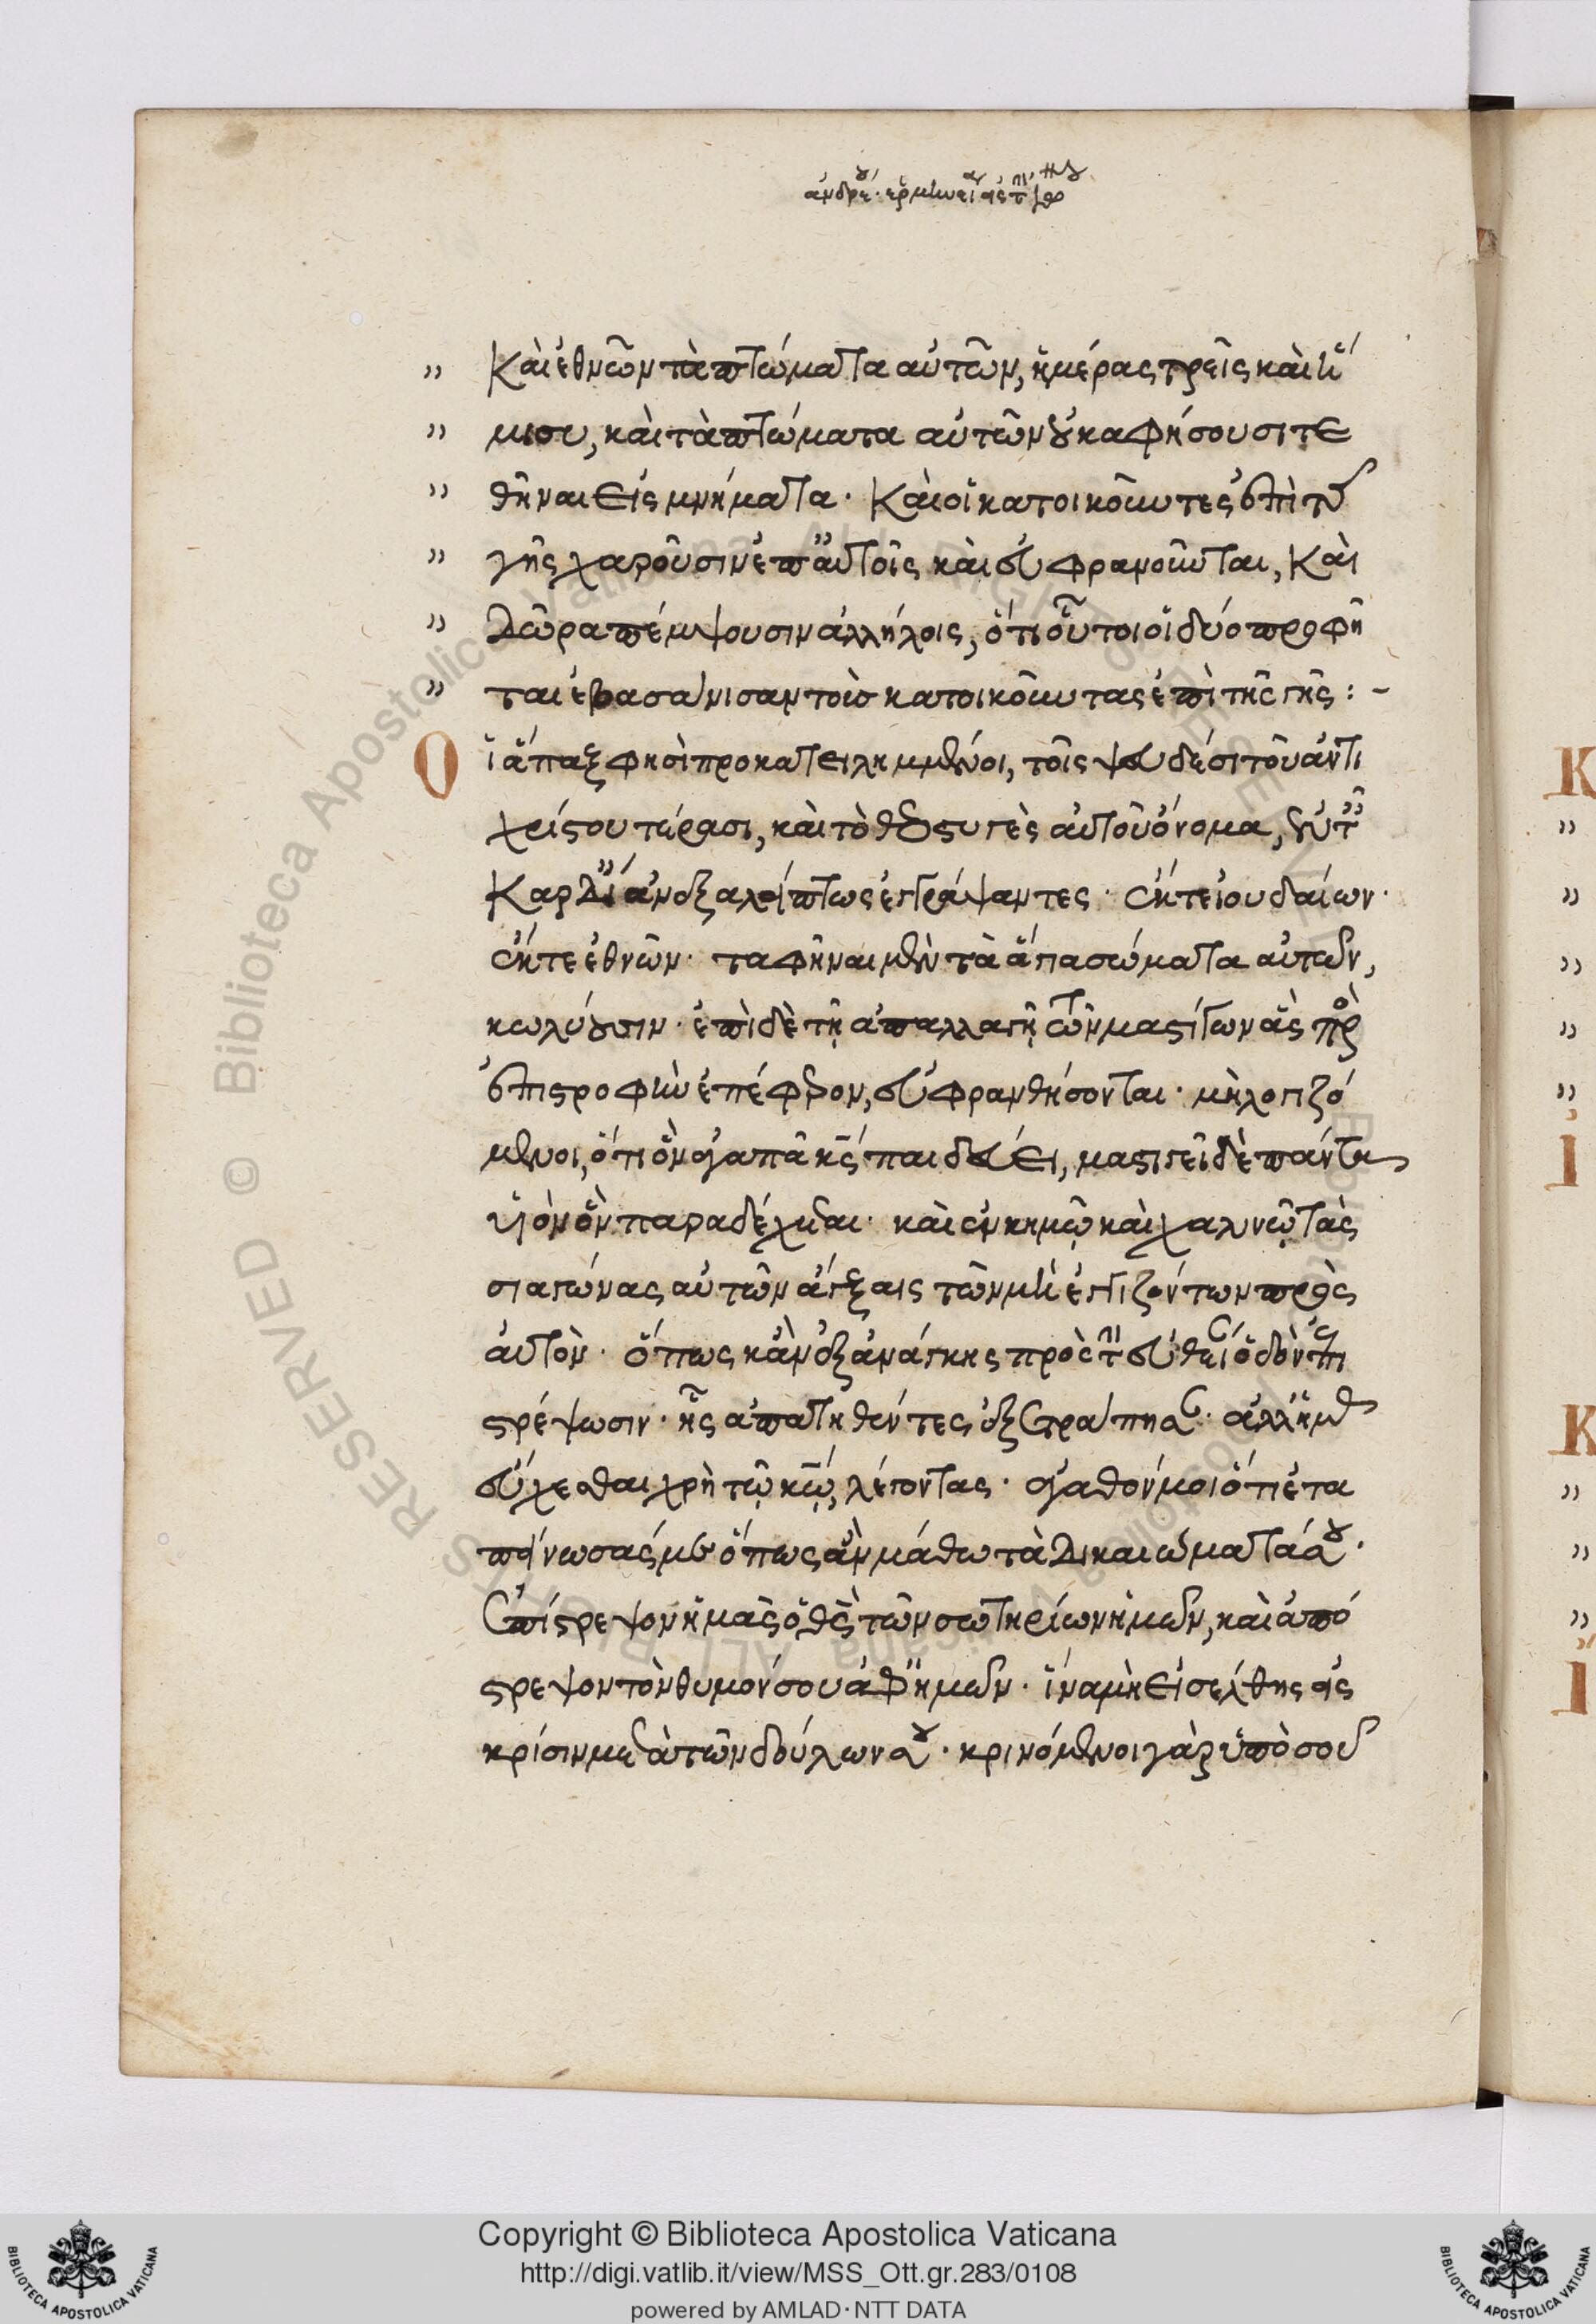 ἀνδρέου ἑρμηνεία εἰς τὴν
Καὶ ἐθνῶν τὰ πτώματα αὐτῶν, ἡμέρας τρεῖς καὶ ἥ
μισυ, καὶ τὰ πτώματα αὐτῶν οὐκ ἀφήσουσι τε
θῆναι εἰς μνήματα. Καὶ οἱ κατοικοῦντες ἐπὶ τῆς
γῆς χαροῦσιν ἐπ' αὐτοῖς καὶ εὐφρανοῦνται, Καὶ
Δῶρα πέμψουσιν ἀλλήλοις, ὅτι οὗτοι οἱ δύο προφῆ
ται ἐβασάνισαν τοὺς κατοικοῦντας ἐπὶ τῆς γῆς :-
Οἱ ἅπαξ φησὶ προκατειλημμένοι, τοῖς ψευδέσι τοῦ ἀντι
χρίστου τέρασι, καὶ τὸ θεοστυγὲς αὐτοῦ ὄνομα, ἐν τῇ
Καρδίᾳ ἀνεξαλείπτως ἐγγράψαντες. ἔκ τε ἰουδαίων.
ἔκ τε ἐθνῶν. ταφῆναι μὲν τὰ ἅγια σώματα αὐτῶν,
κωλύουσιν. ἐπὶ δὲ τῇ ἀπαλλαγῇ τῶν μαστίγων ἃς πρὸς
ἐπιστροφὴν ἐπέφερον, εὐφρανθήσονται. μὴ λογιζό
μενοι, ὅτι ὃν ἀγαπᾷ κς παιδεύει, μαστιγεῖ δὲ πάντα
υἱὸν ὃν παραδέχεται. καὶ ἐν κημῷ καὶ χαλινῷ τὰς
σιαγώνας αὐτῶν ἄγξαις τῶν μὴ ἐγγιζόντων πρὸς
αὐτὸν. ὅπως κἂν ἐξ ἀνάγκης πρὸς τὴν εὐθεῖαν ὁδὸν ἐπι
στρέψωσιν. ἧς ἀπατηθέντες ἐξετράπησαν. ἀλλ' ἡμᾶς
εὔχεσθαι χρὴ τῷ κῷ, λέγοντας. ἀγαθόν μοι ὅτι ἐτα
πείνωσάς με ὅπως ἂν μάθω τὰ Δικαιώματά σου.
Ἐπίστρεψον ἡμᾶς ὁ θς τῶν σωτηρίων ἡμῶν, καὶ ἀπό
στρεψον τὸν θυμόν σου ἀφ' ἡμῶν. ἵνα μὴ εἰσέλθῃς εἰς
κρίσιν μετὰ τῶν δούλων σου. κρινόμενοι γὰρ ὑπὸ σοῦ
Κ
ἱ
Κ
ἵ
Copyright © Biblioteca Apostolica Vaticana
http://digi.vatlib.it/view/MSS_Ott.gr.283/0108
powered by AMLAD·NTT DATA